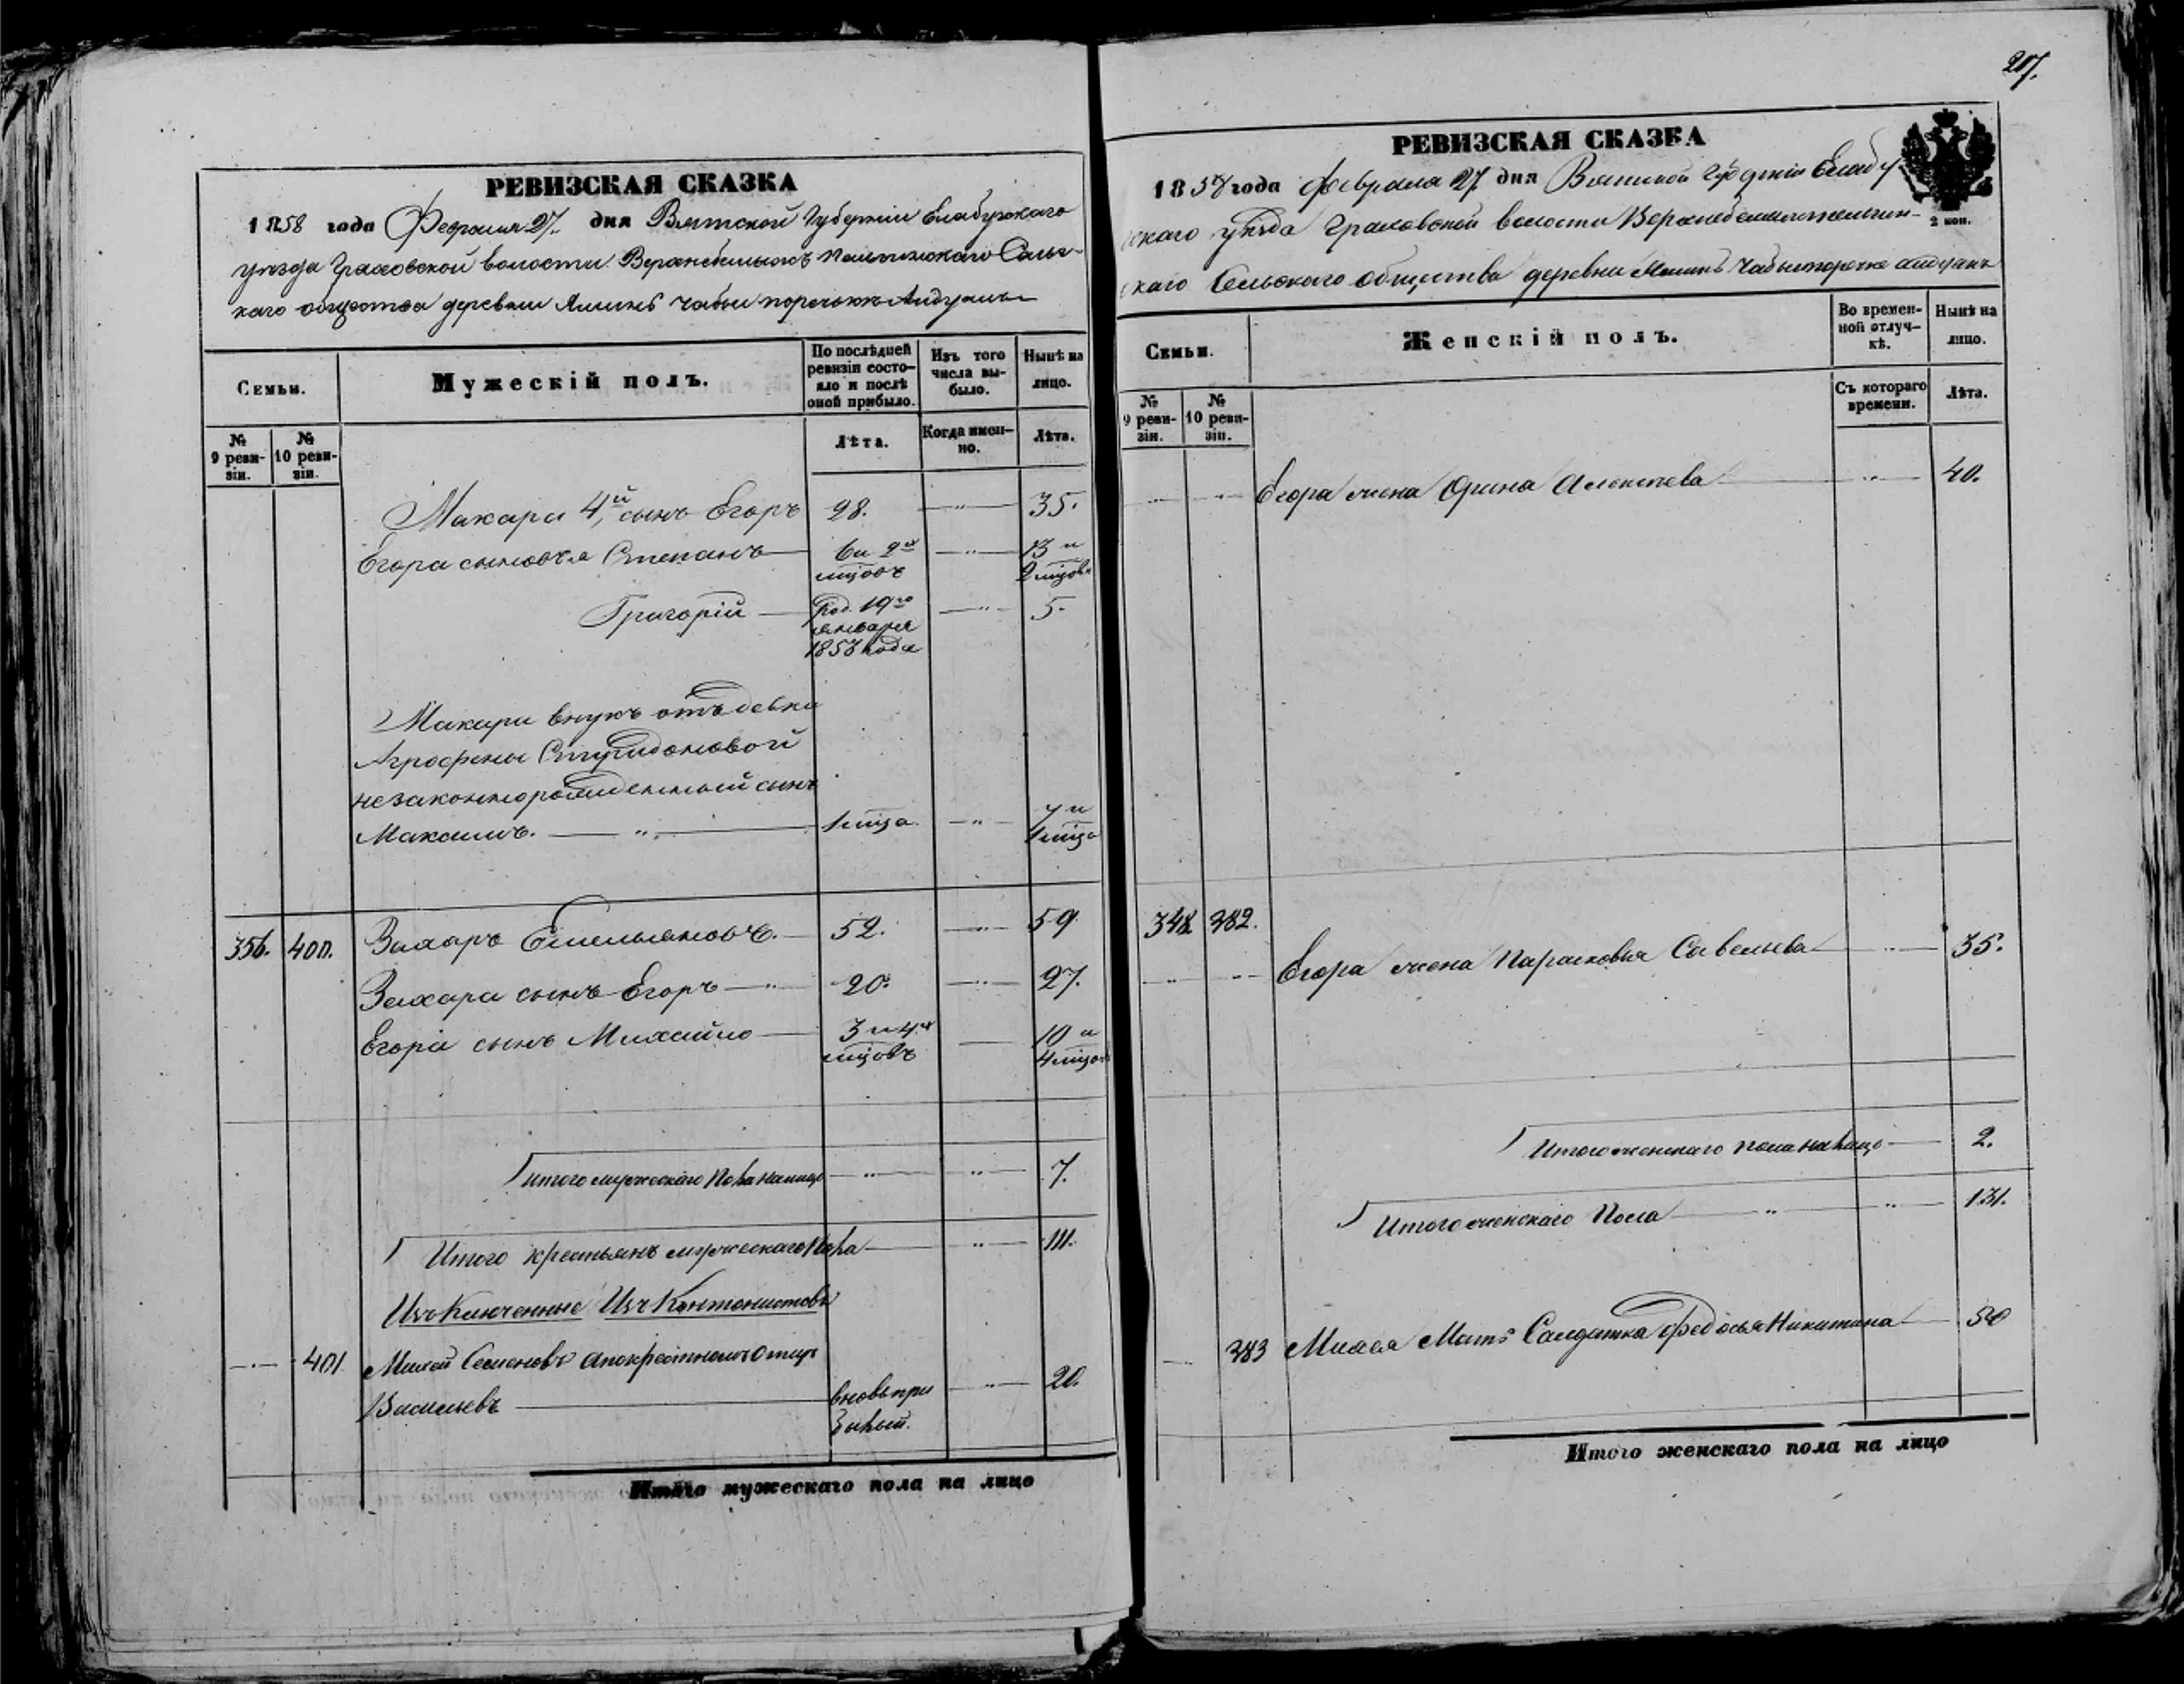 207.
РЕВИЗСКАЯ СКАЗКА
1858 года Февраля 27 дня Вятской Губерніи Елабужскаго
уѣзда Граховской волости
каго общества деревни чабьи поречокъ
Семьи.
Мужескій полъ.
По послѣдней ревизіи состояло и послѣ оной прибыло.
Изъ того числа выбыло.
Нынѣ на лицо.
№ 9 ревизіи.
№ 10 ревизіи.
Лѣта.
Когда именно.
Лѣта.
Макара 4й сынъ Егоръ 28. —„— 35.
Егора сыновья Степанъ — 6 и 2х мцовъ —„— 13 и 2 мцов
Григорій — Род. 19го января 1853 года —„— 5.
Макара внукъ отъ девки
Агрофены Спиридоновой
незаконнорожденный сынъ
Максимъ. —„— 1 мца. —„— 7 и 1 мца
356. 400. Захаръ Емельяновъ. — 52. —„— 59
Захара сынъ Егоръ —„— 20. —„— 27.
Егора сынъ Михайло — 3 и 4х мцовъ — 10 и 4 мцов
Итого мужескаго пола налицо —„— —„— 7.
Итого крестьянъ мужескаго пола — —„— 111.
Изъключенные Изъ Кантонистовъ
—„— 401. Михей Семеновъ а по крестному отцу
Васильевъ — вновь при
былый. —„— 20.
Итого мужескаго пола на лицо
РЕВИЗСКАЯ СКАЗКА
1858 года Февраля 27 дня Вятской Губерніи Елабу
2 коп.
скаго уѣзда Граховской волости
скаго Сельскаго общества деревни
Семьи.
Женскій полъ.
Во временной отлучкѣ.
Нынѣ на лицо.
№ 9 ревизіи.
№ 10 ревизіи.
Съ котораго времени.
Лѣта.
—„— —„— Егора жена Орина Алексѣева —„— 40.
348. 382.
—„— —„— Егора жена Парасковья Савельева —„— 35.
Итого женскаго пола налицо — 2.
Итого женскаго Пола —„— —„— 131.
—„— 383 Михея Мать Салдатка Федосья Никитина — 50
Итого женскаго пола на лицо